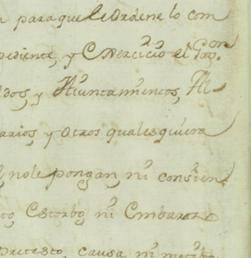 para que le Ordene lo com
pediente, y Exercicio el Pro.on
dos, y Aiuntamientos, Al
arios, y otros qualesquiera
nole pongan, ni consien
Estorbo ni Embarazo
pretexto, causa, ni motibo